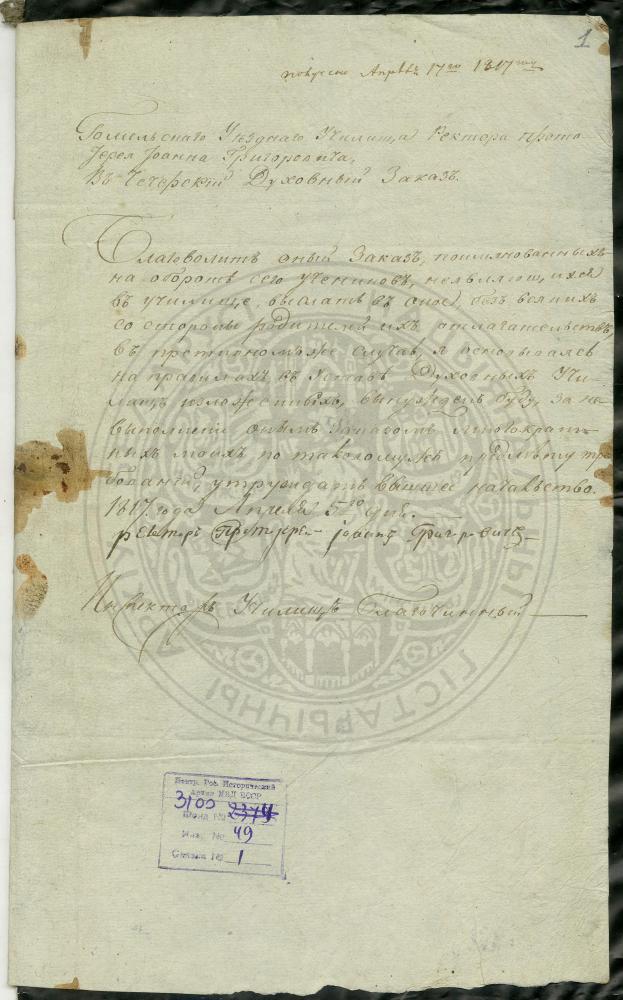 1
Апреля 17го 1817го
Гомельскаго Уѣзднаго Училища Ректора прото
Іерея Іоанна Григоровича,
Въ Чечерскій Духовный Заказъ.
Благоволитъ оный Заказъ, поимянованныхъ
на оборотѣ сего учениковъ, неявляющихся
въ училище, выслать въ оное, безъ всякихъ
со стороны родителей ихъ отлагательствъ,
въ противномъ же случаѣ, я основываясь
на правилахъ въ Уставѣ Духовныхъ Учи-
лищъ изложенныхъ, вынужденъ буду, за не
выполненіе онымъ Заказомъ многократ-
ныхъ моихъ по таковомуже предмѣту тре
бованій, утруждать высшее начальство.
1817 года Апреля 5го дня.
ректоръ Протоіерей Іоаннъ Григоровичъ
Инспекторъ Училищъ Благочинный
Центр. Исторический
Архив МВД БССР
3100 2374
Фонд №
Инв. № 49
Связка № 1
ГІСТАРЫЧНЫ